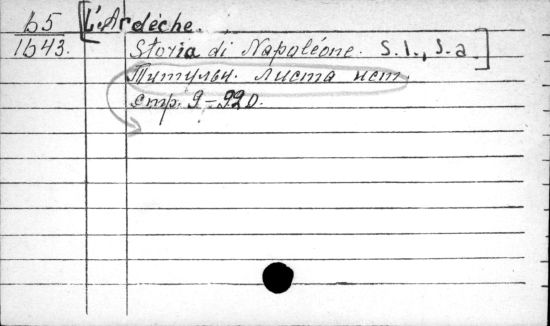 b5
[L'Ardéche.
1b43.
Storia di Napoléone. S.l., S.a.]
Титульн. листа нет.
стр. 9-920.